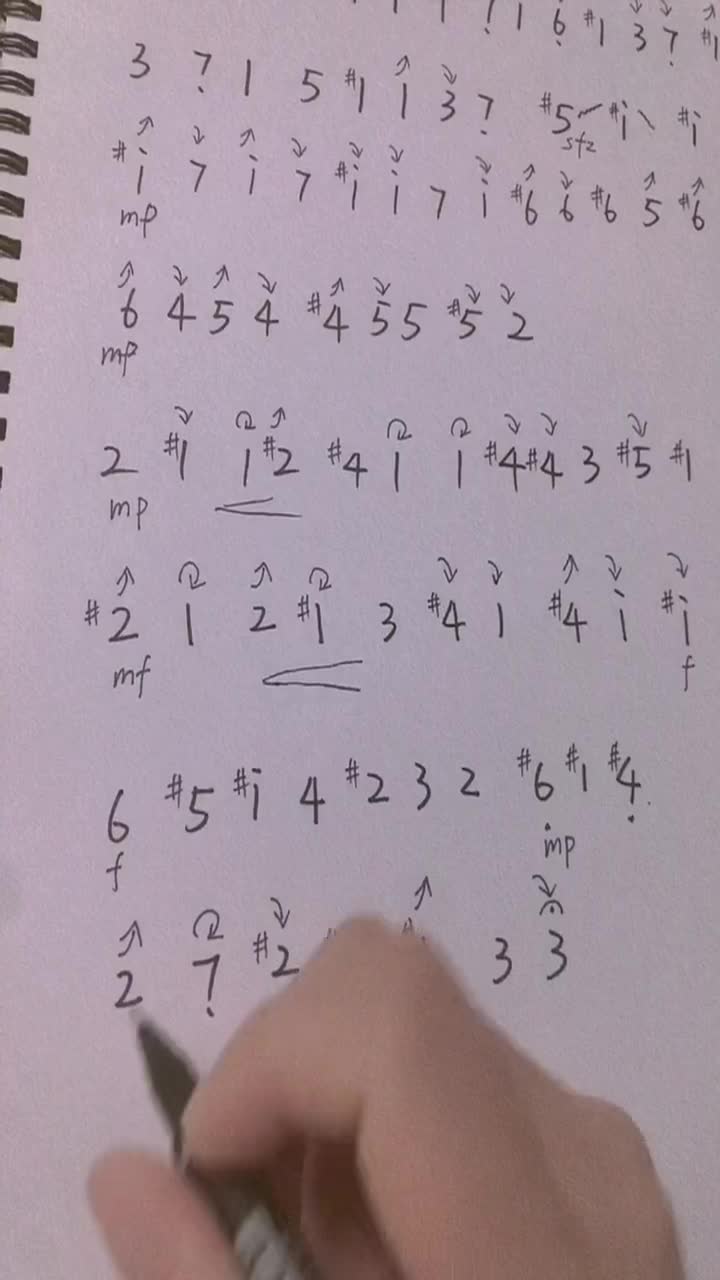 ! 1 6̣ #1 3 7̣ #1
3 7̣ 1 5 #1 1 3 7̣ #5 #i i
sfz
#i 7 i 7 #i i 7 i #6 6 #6 5 #6
mp
6 4 5 4 #4 5 5 #5 2
mp
2 #1 1 #2 #4 1 1 #4 #4 3 #5 #1
mp
#2 1 2 #1 3 #4 1 #4 i #i
mf f
6 #5 #i 4 #2 3 2 #6̣ #1 #4̣
f mp
2 7̣ #2 3 3